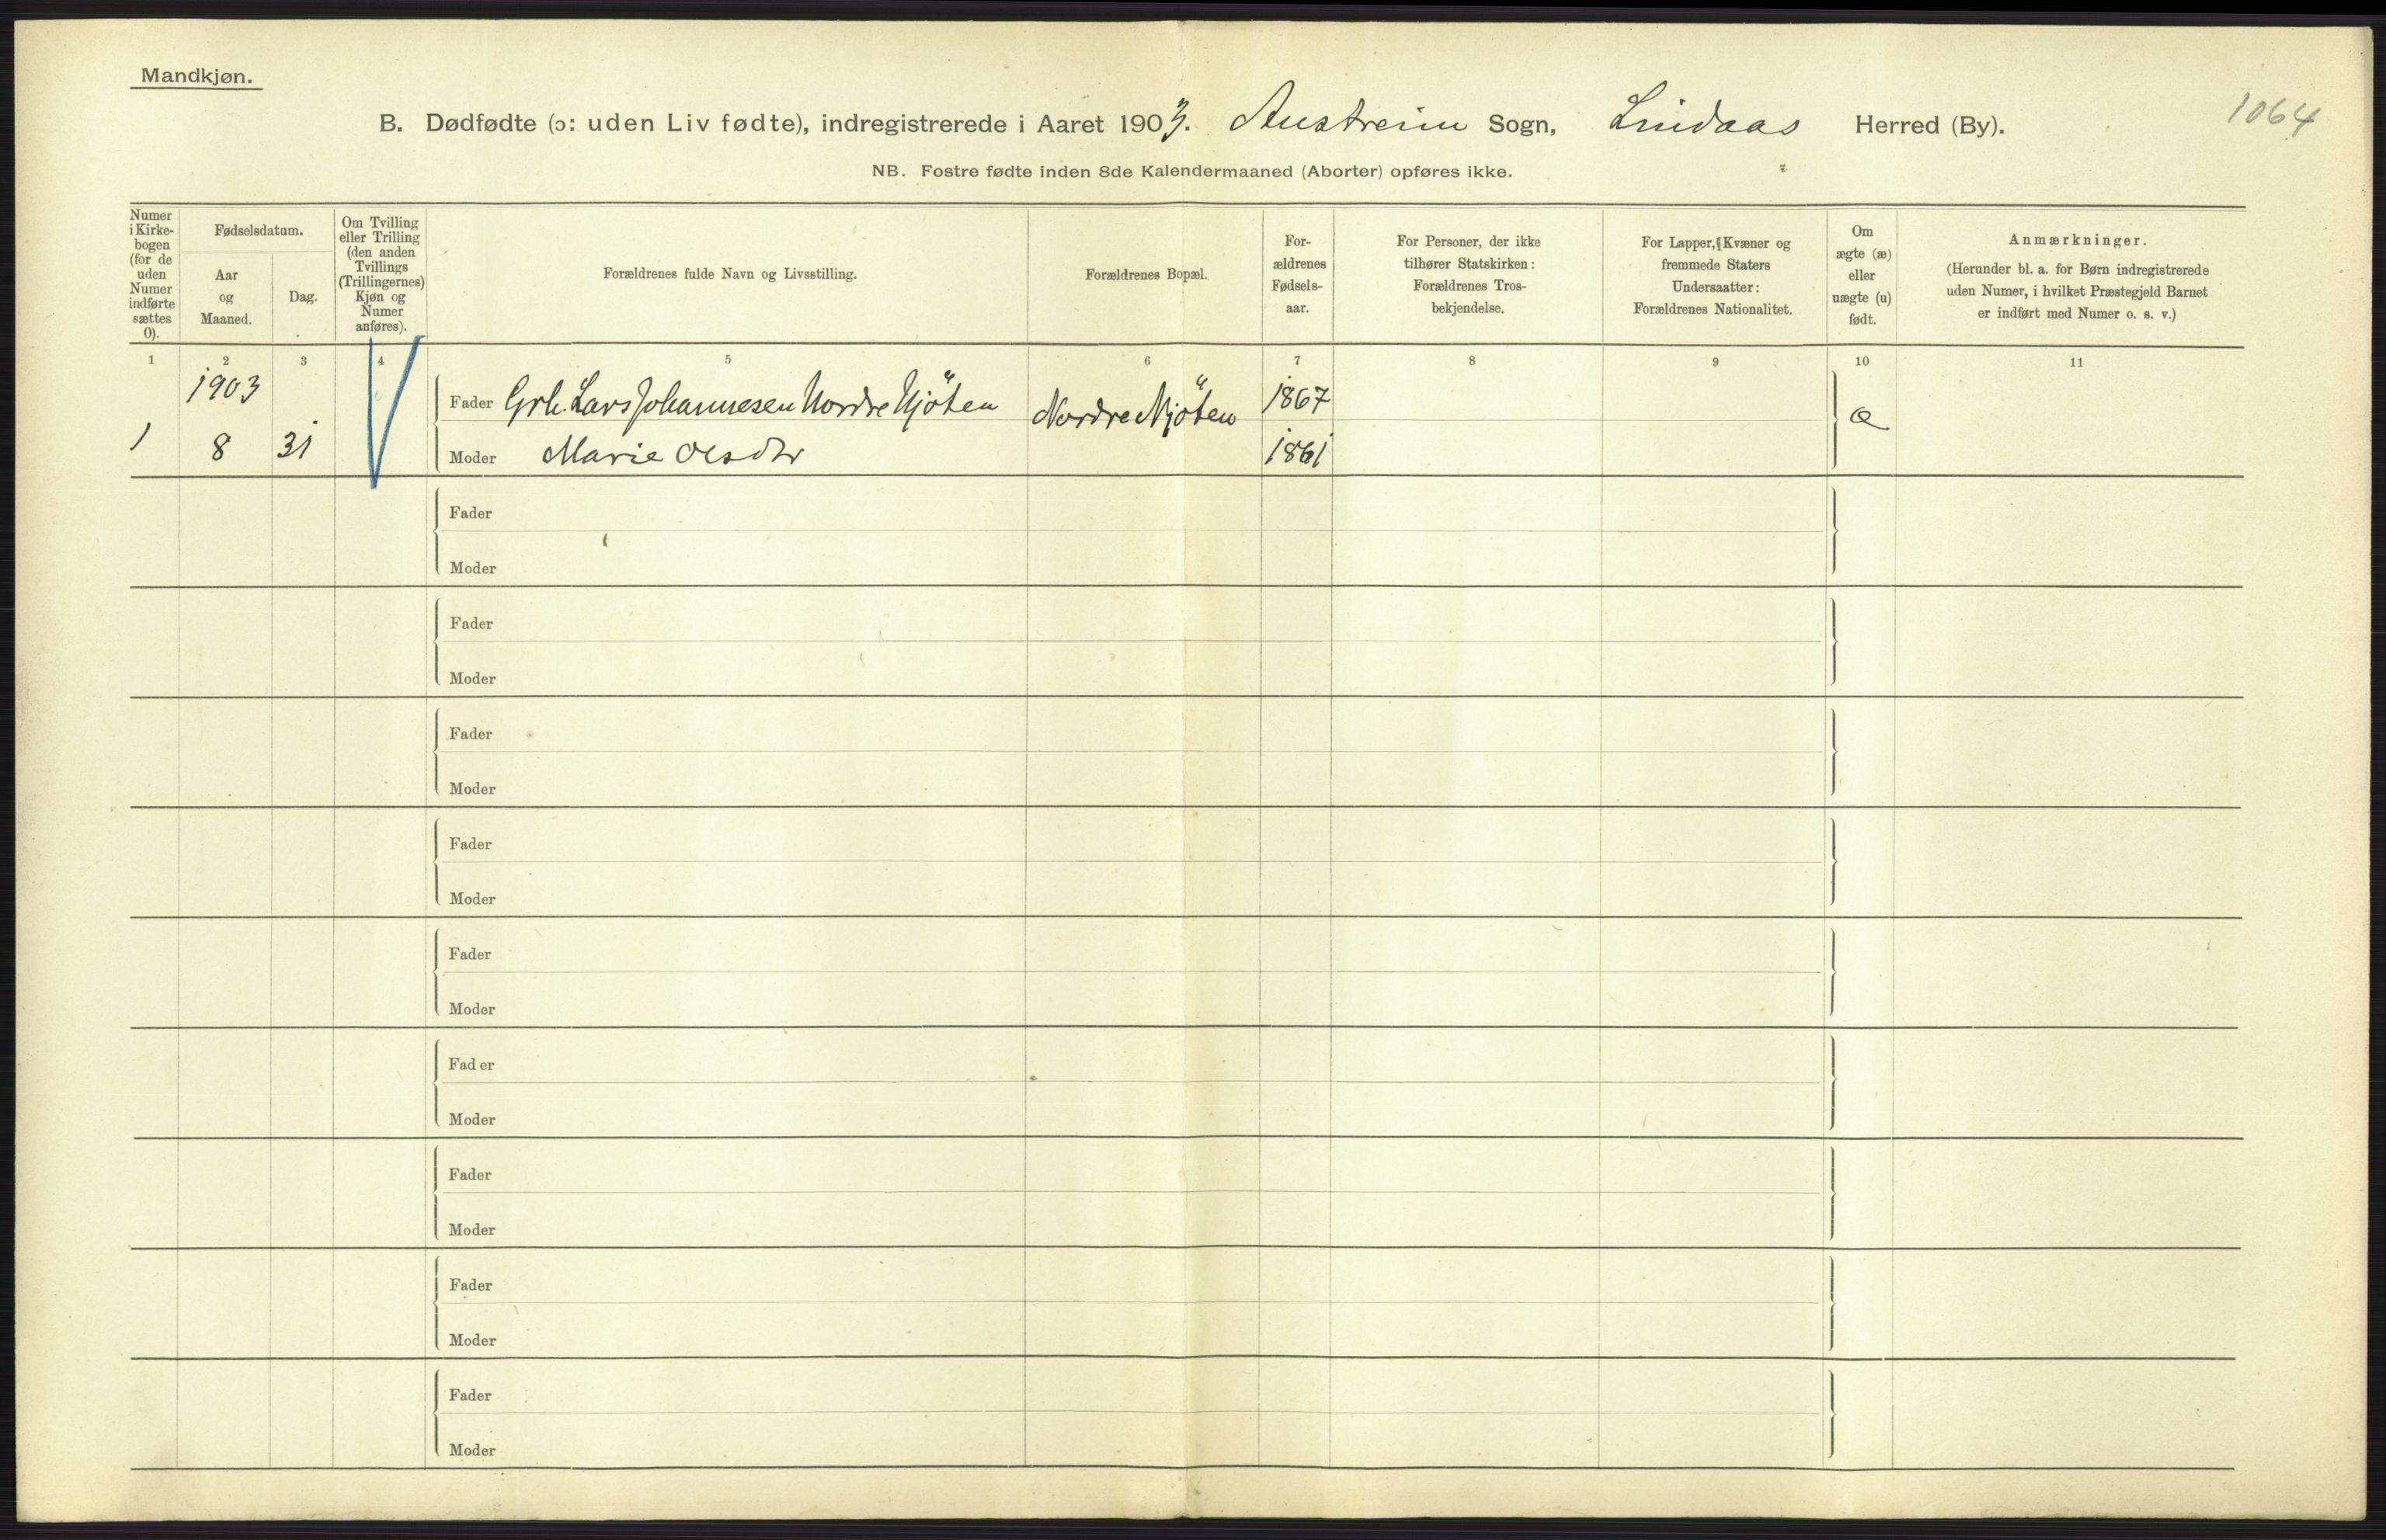 Mandkjøn.
1064
B. Dødfødte (ɔ: uden Liv fødte), indregistrerede i Aaret 1903. Austreim Sogn, Lindaas Herred (By).
NB. Fostre fødte inden 8de Kalendermaaned (Aborter) opføres ikke.
Numer
i Kirke-
bogen
(for de
uden
Numer
indførte
sættes
0).
Fødselsdatum.
Aar
og
Maaned.
Dag.
Om Tvilling
eller Trilling
(den anden
Tvillings
(Trillingernes)
Kjøn og
Numer
anføres).
Forældrenes fulde Navn og Livsstilling.
Forældrenes Bopæl.
For-
ældrenes
Fødsels-
aar.
For Personer, der ikke
tilhører Statskirken:
Forældrenes Tros-
bekjendelse.
For Lapper, Kvæner og
fremmede Staters
Undersaatter:
Forældrenes Nationalitet.
Om
ægte (æ)
eller
uægte (u)
født.
Anmærkninger.
(Herunder bl. a. for Børn indregistrerede
uden Numer, i hvilket Præstegjeld Barnet
er indført med Numer o. s. v.)
1 2 3 4 5 6 7 8 9 10 11
1903
Fader Grb. Lars Johannesen Nordre Njöten Nordre Njöten 1867 æ
1 8 31 Moder Marie Olsdtr 1861
Fader
Moder
Fader
Moder
Fader
Moder
Fader
Moder
Fader
Moder
Fader
Moder
Fader
Moder
Fader
Moder
Fader
Moder